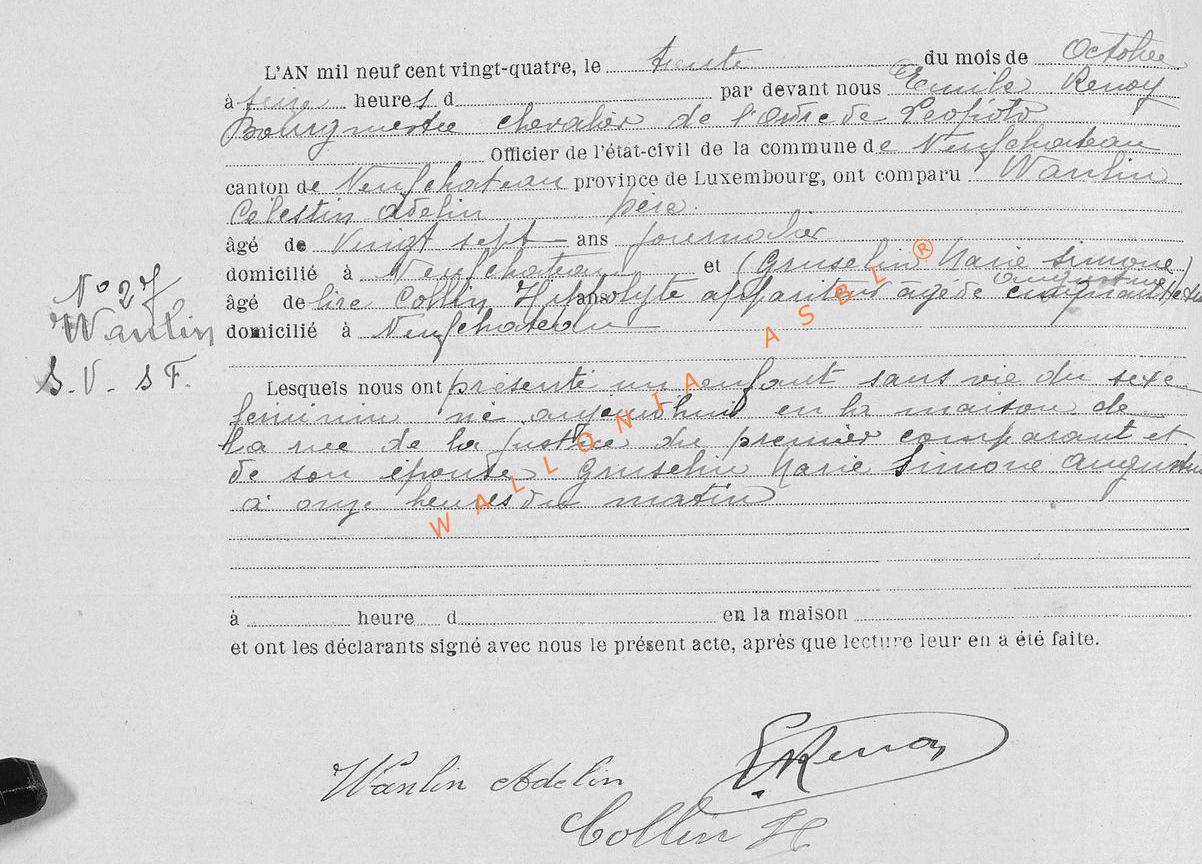 L'AN mil neuf cent vingt-quatre, le trente du mois de Octobre
à seize heures d par devant nous Emile Renoy
Bourgmestre chevalier de l'ordre de Léopold
Officier de l'état-civil de la commune de Neufchateau
canton de Neufchateau province de Luxembourg, ont comparu Wanlin
Célestin Adelin père
âgé de vingt sept ans journalier
domicilié à Neufchateau et (Gruselin Marie Simone)
Augustine
âgé de lire Collin Hippolyte ans appariteur âgé de
domicilié à Neufchateau
N° 27
Wanlin
S. V. S F.
Lesquels nous ont présenté un enfant sans vie du sexe
féminin né aujourd'hui en la maison de
la rue de la Justice du premier comparant et
de son épouse Gruselin Marie Simone Augustine
à onze heures du matin
à heure d en la maison
et ont les déclarants signé avec nous le présent acte, après que lecture leur en a été faite.
Wanlin Adelin
E. Renoy
Collin H
WALLONIA ASBL ®